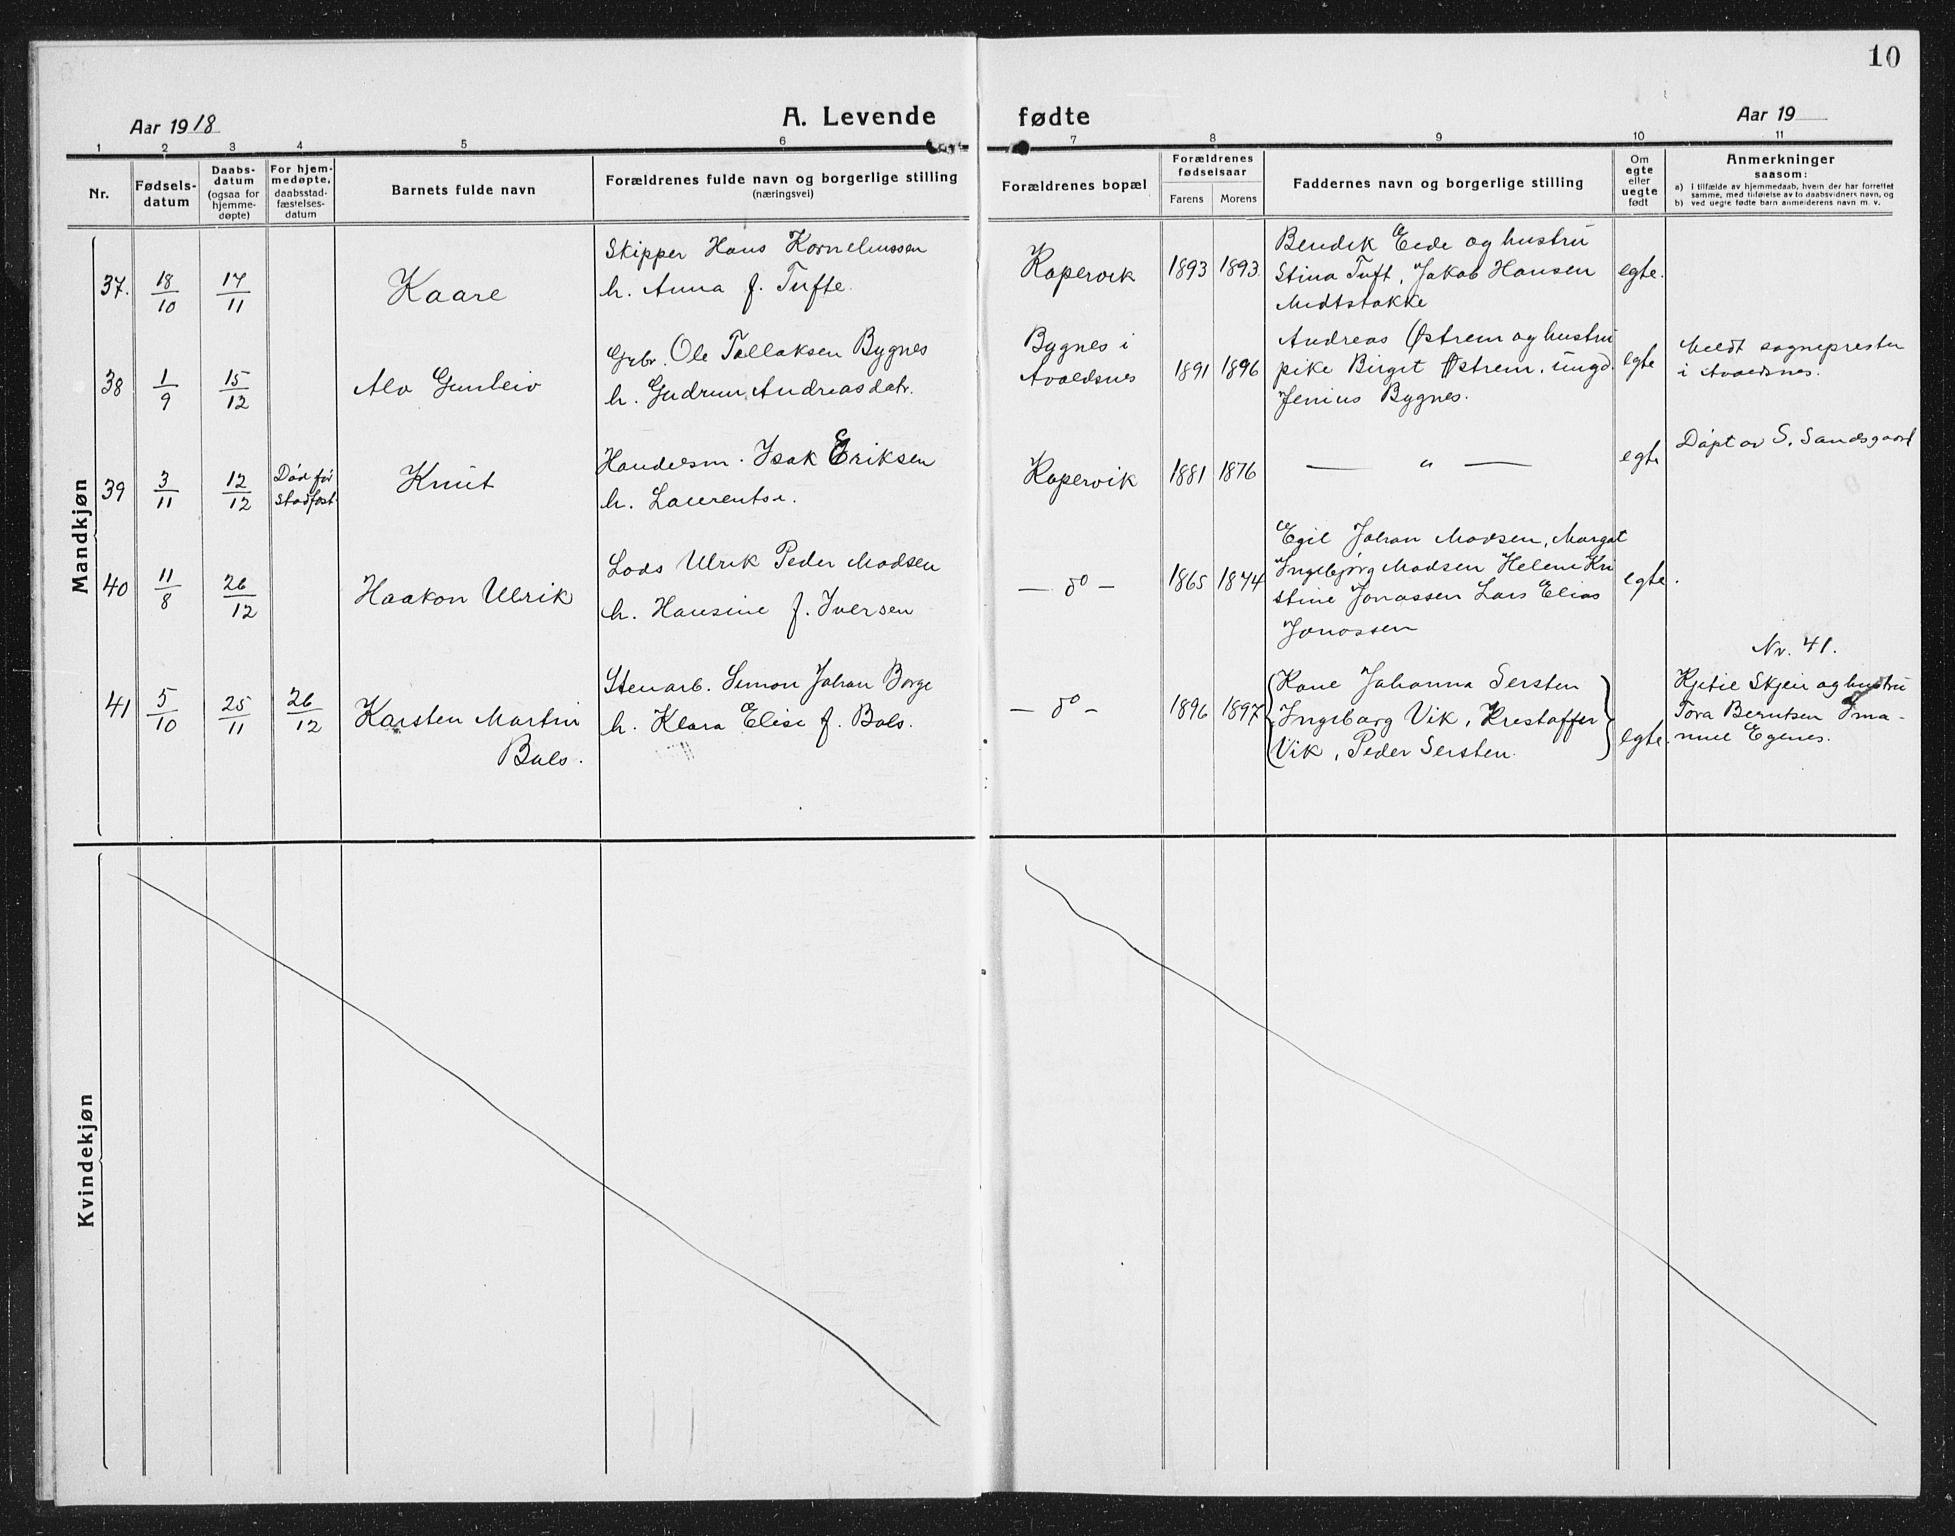 10
Aar 1918
A. Levende fødte
Aar 19
1 2 3 4 5 6 7 8 9 10 11
Nr.
Fødsels-
datum
Daabs-
datum
(ogsaa for
hjemme-
døpte)
For hjem-
medøpte,
daabsstad-
fæstelses-
datum
Barnets fulde navn
Forældrenes fulde navn og borgerlige stilling
(næringsvei)
Forældrenes bopæl
Forældrenes
fødselsaar
Farens Morens
Faddernes navn og borgerlige stilling
Om
egte
eller
uegte
født
Anmerkninger
saasom:
a) i tilfælde av hjemmedaab, hvem der har forrettet
samme, med tilføielse av to daabsvidners navn, og
b) ved uegte fødte barn anmelderens navn m. v.
Mandkjøn
37. 18/10 17/11
Kaare
Skipper Hans Korneliussen
h. Anna f. Tufte.
Kopervik
1893 1893
Bendik Eide og hustru
Stina Tuft, Jakob Hansen
Midtstokke
egte.
38 1/9 15/12
Alv Gunleiv
Grbr. Ole Tollaksen Bygnes
h. Gudrun Andreasdatr.
Bygnes i
Avaldsnes
1891 1896
Andreas Østrem og hustru
pike Birgit Østrem, ungd.
Jenius Bygnes.
egte
Meldt sognepresten
i Avaldsnes.
39 3/11 12/12
Død før
Stadfæst
Knut
Handelsm. Isak Eriksen
h. Laurentse.
Kopervik
1881 1876
— " —
egte
Døpt av S. Sandsgaard
40 11/8 26/12
Haakon Ulrik
Lods Ulrik Peder Madsen
h. Hansine f. Iversen
— do —
1865 1874
Egil Johan Madsen, Margot
Ingebjørg Madsen Helene Kri
stine Jonassen Lars Elias
Jonassen
egte.
41 5/10 25/11 26/12
Karsten Martin
Bals.
Stenarb. Simon Johan Borge
h. Klara Elise f. Bals.
— do —
1896 1897
Kone Johanna Sersten
Ingeborg Vik, Kristoffer
Vik, Peder Sersten.
egte.
Nr. 41.
Kjetil Skjen og hustru
Tora Berntsen Ima-
nuel Egenes.
Kvindekjøn